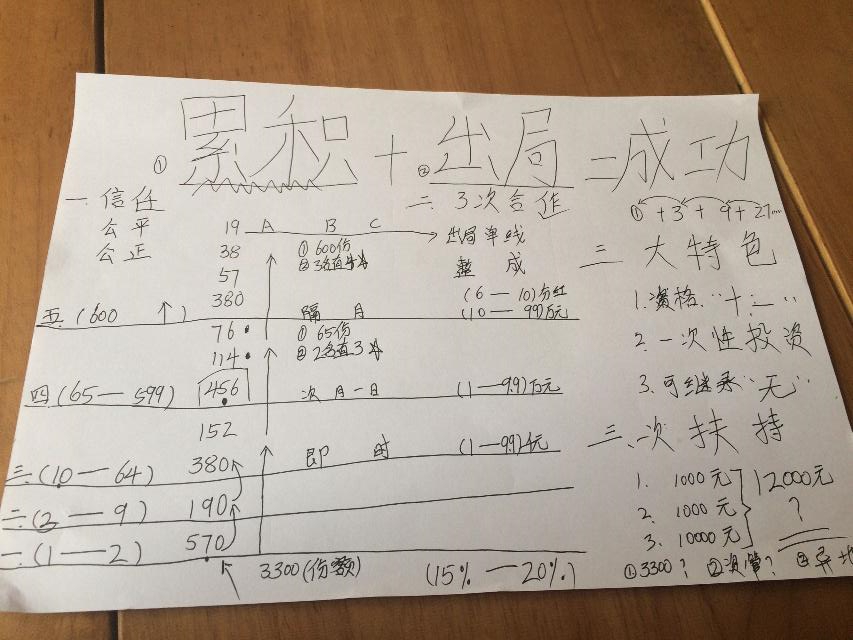 ① 累积 + ② 出局 = 成功
一. 信任
公平
公正
二. 3次合作
① + 3 + 9 + 27
19 A B C 出局单线
38 ① 600份
57 整成
380 (6 — 10)分红
五. (600 ↑) 隔月 (10 — 99)万元
76 ① 65份
114
四 (65 — 599) 456 次月一日 (1 — 9.9)万元
152
三. (10 — 64) 380 即时 (1 — 99)千元
二. (2 — 9) 190
一. (1 — 2) 570
3300 (份额) (15% — 20%)
三大特色
1. 资格
2. 一次性投资
3. 可继承 "无"
三、次扶持
1. 1000元
2. 1000元
3. 10000元
12000元
?
① 3300? ②